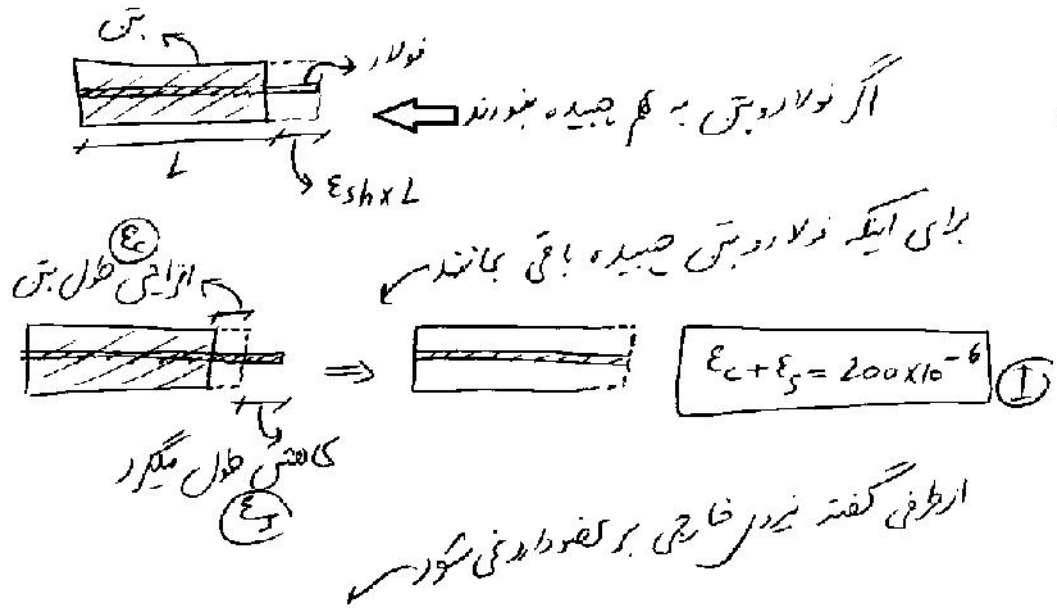 بتن
فولاد
اگر فولاد و بتن به هم چسبیده نبودند
L
εsh×L
برای اینکه فولاد و بتن چسبیده باقی بمانند
εc
افزایش طول بتن
⇒
εc+εs=200×10⁻⁶ I
کاهش طول میلگرد
εs
از طرفی گفته نیروی خارجی بر عضو وارد نمی شود